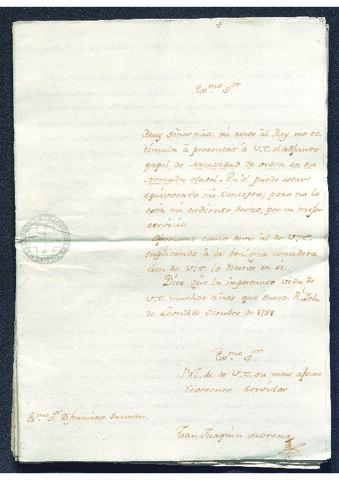 Exmo Sor
Muy señor mio: mi amor al Rey me es-
timula à presentar à V.E. el adjunto
papel, de Necessidad de orden en su
Armada Naval. En èl puede estar
equivocado mi concepto; pero no lo
està mi ardiente deseo, por su mejor
servicio.
como
suplicando à la benigna considera
cion de V.E. lo reserve en si.
Dios gue la importante vida de
V.E. muchos años que deseo. Rl Isla
de Leon de Octubre de
Exmo Sor
de V.E. su mas
Reverente servidor
Juan Joaquin Moreno
Exmo Sor Dn Francisco